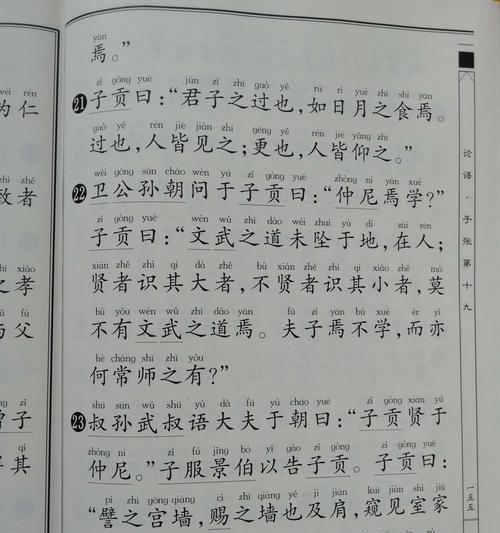 yān
焉。”
zǐ gòng yuē jūn zǐ zhī guò yě rú rì yuè zhī shí yān
21 子贡曰：“君子之过也，如日月之食焉。
guò yě rén jiē jiàn zhī gēng yě rén jiē yǎng zhī
过也，人皆见之；更也，人皆仰之。”
wèi gōng sūn cháo wèn yú zǐ gòng yuē zhòng ní yān xué
22 卫公孙朝问于子贡曰：“仲尼焉学？”
zǐ gòng yuē wén wǔ zhī dào wèi zhuì yú dì zài rén
子贡曰：“文武之道未坠于地，在人；
xián zhě zhì qí dà zhě bù xián zhě zhì qí xiǎo zhě mò
贤者识其大者，不贤者识其小者，莫
bù yǒu wén wǔ zhī dào yān fū zǐ yān bù xué ér yì
不有文武之道焉。夫子焉不学，而亦
hé cháng shī zhī yǒu
何常师之有？”
shū sūn wǔ shū yù dà fū yú cháo yuē zǐ gòng xián yú
23 叔孙武叔语大夫于朝曰：“子贡贤于
zhòng ní zǐ fú jǐng bó yǐ gào zǐ gòng zǐ gòng yuē
仲尼。”子服景伯以告子贡。子贡曰：
pì zhī gōng qiáng cì zhī qiáng yě jí jiān kuī jiàn shì jiā
“譬之宫墙，赐之墙也及肩，窥见室家
论语·子张第十九
一五五
wéi rén
为仁
致者
xiào
之孝
fù
与父
zǐ
曾子
qí
子其